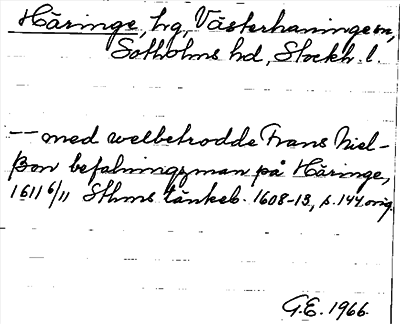 Häringe, hg, Västerhaninge sn,
Sotholms hd, Stockh. l.
— med welbetrodde Frans Niel-
ßon befalningzman på Häringe,
1611 6/11 Sthms tänkeb. 1608-13, s. 144 orig.
G.E. 1966.